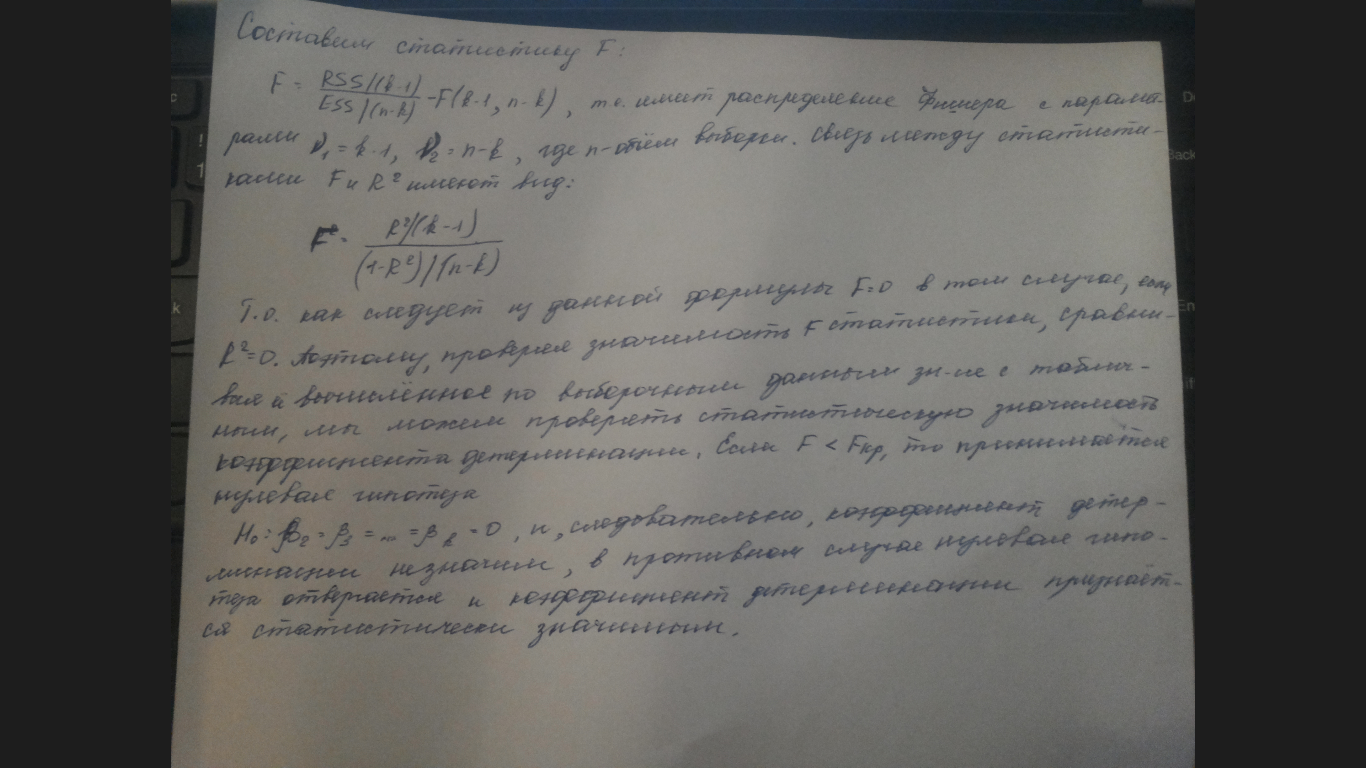 Составим статистику F:
F = RSS/(k-1) / ESS/(n-k) ~ F(k-1, n-k), т.е. имеет распределение Фишера с парамет-
рами ν₁ = k-1, ν₂ = n-k, где n-объём выборки. Связь между статисти-
ками F и R² имеют вид:
F = R²/(k-1) / (1-R²)/(n-k)
Т.о. как следует из данной формулы F=0 в том случае, если
R²=0. Поэтому, проверяя значимость F статистики, сравни-
вая вычислённое по выборочным данным зн-ие с таблич-
ным, мы можем проверять статистическую значимость
коэффициента детерминации. Если F < Fкр, то принимается
нулевая гипотеза
H₀: β₂ = β₃ = ... = βₖ = 0, и, следовательно, коэффициент детер-
минации незначим, в противном случае нулевая гипо-
теза отвергается и коэффициент детерминации признаёт-
ся статистически значимым.